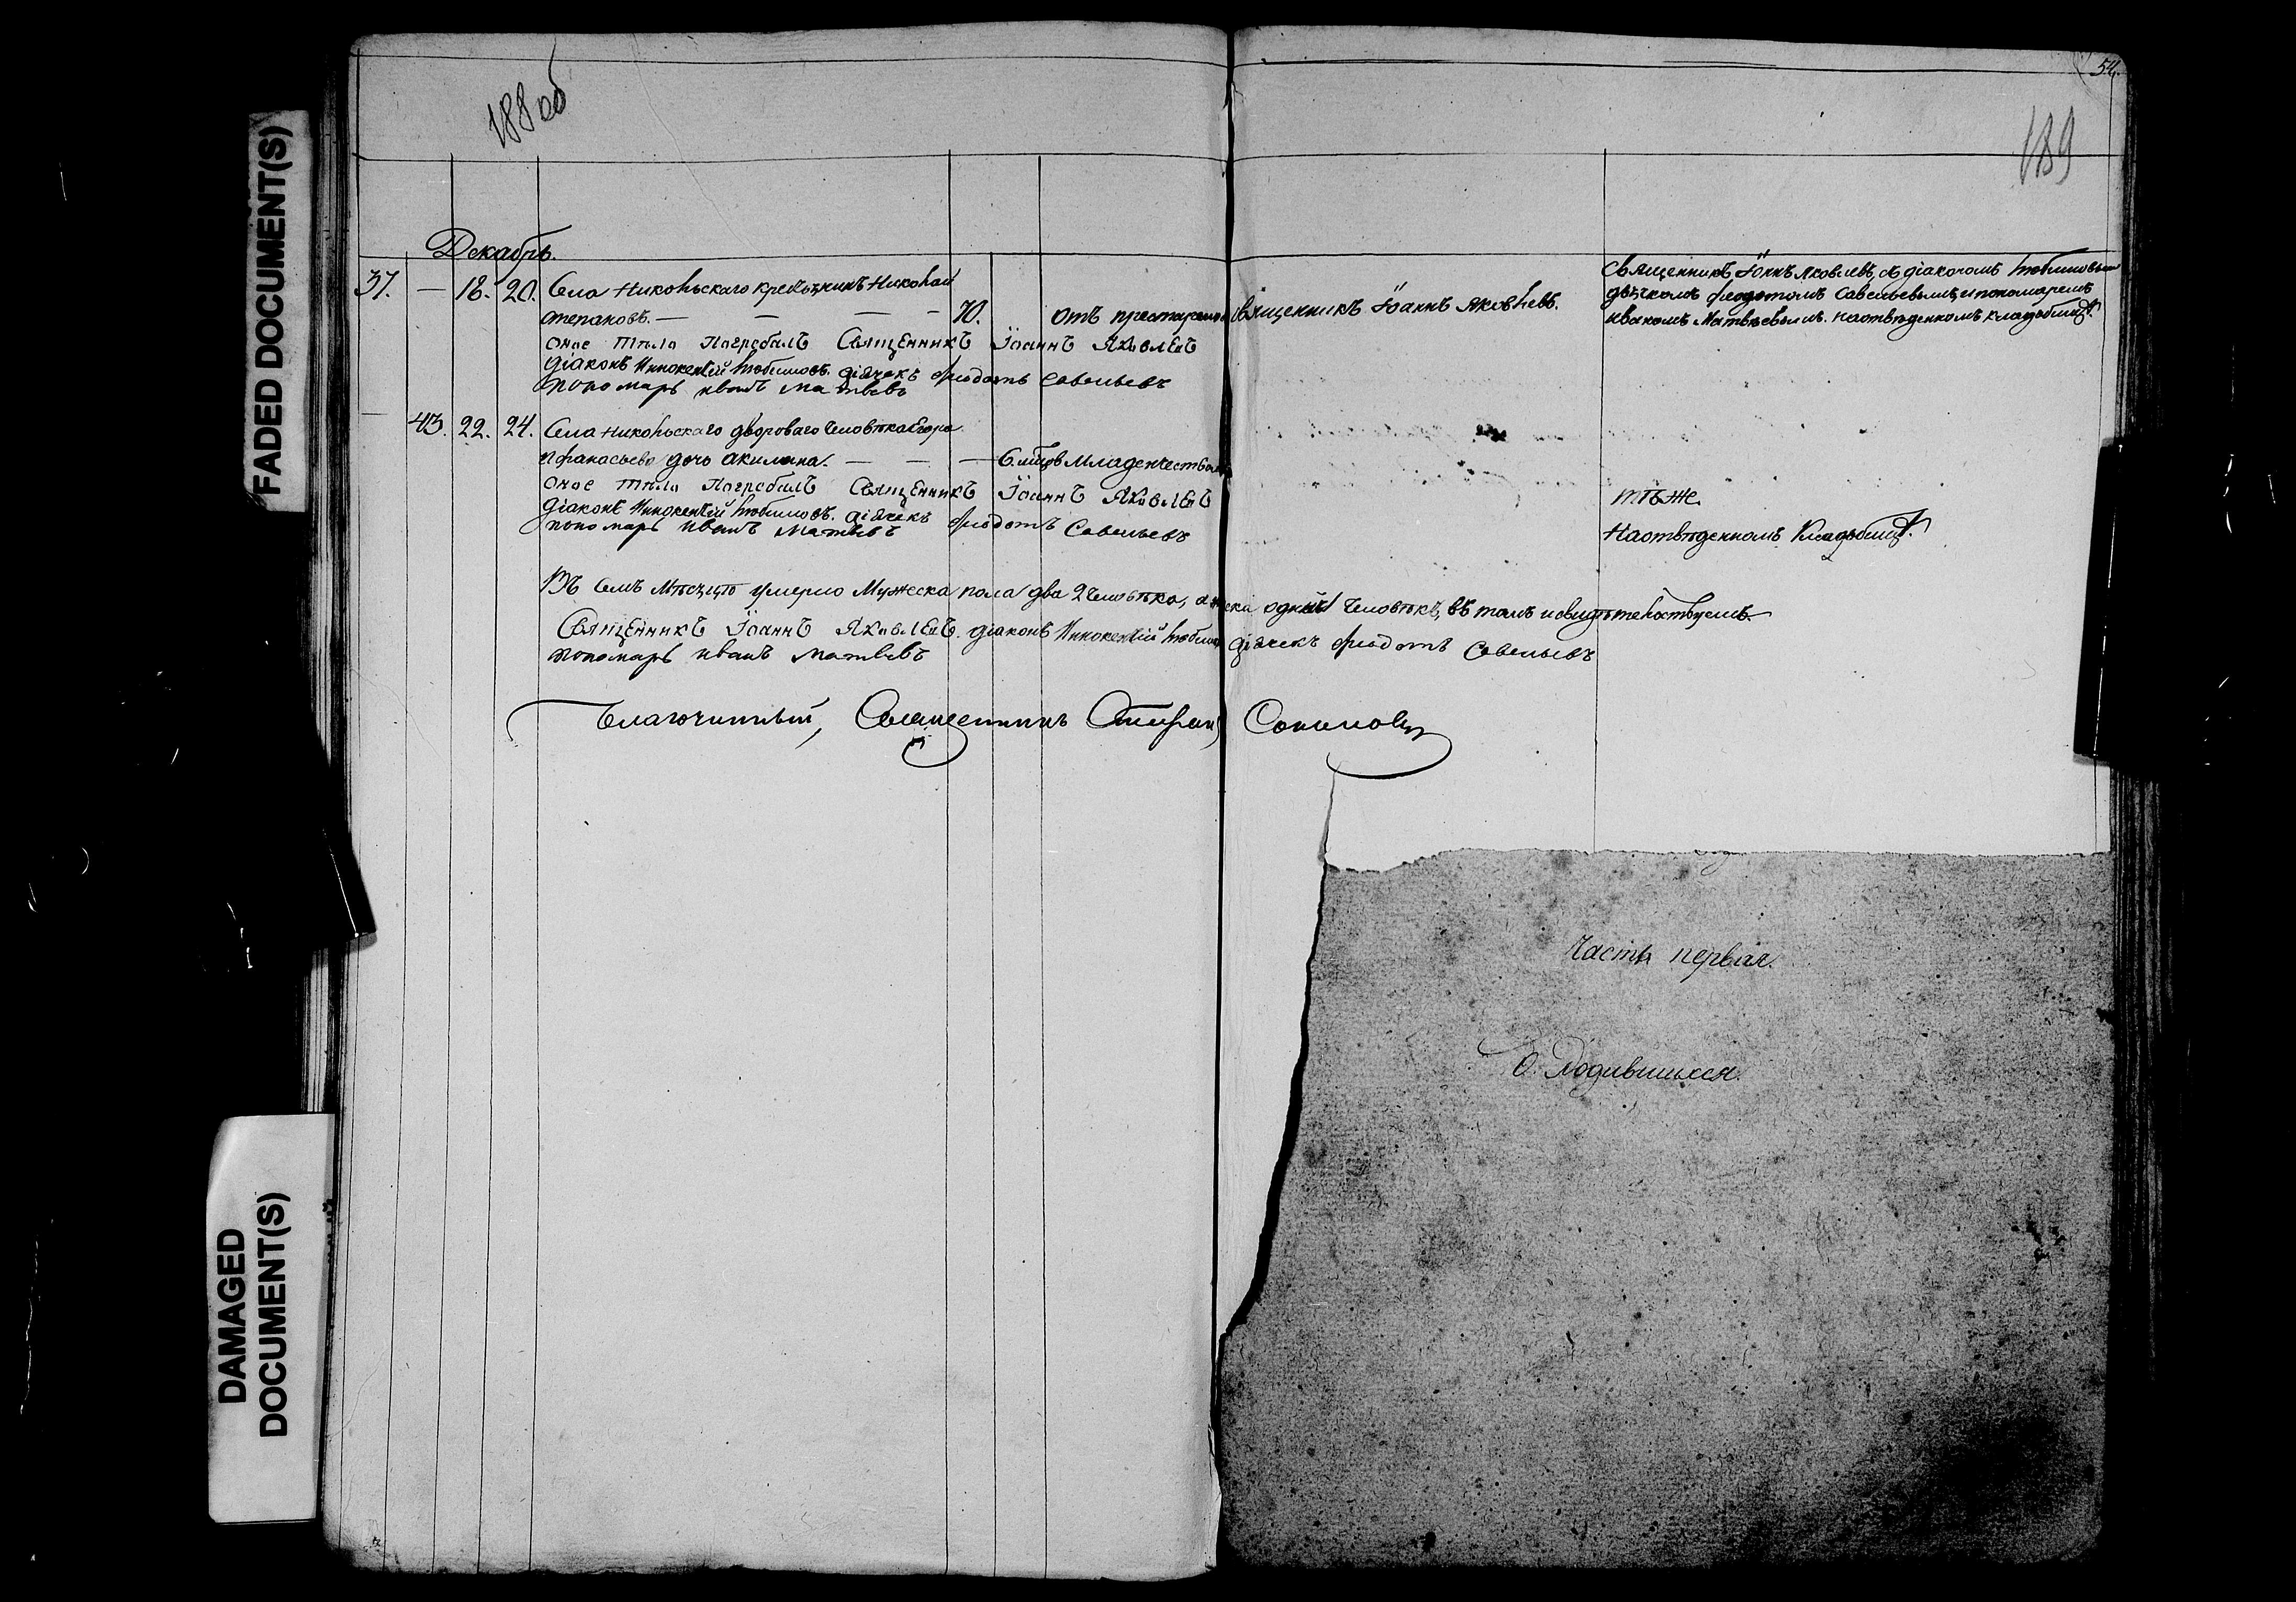 FADED DOCUMENT(S)
DAMAGED
DOCUMENT(S)
188 об
54.
189
Декабрь.
37. — 18. 20. Села Никольскаго крестьянинъ Николай
Степановъ. — — — — 70. отъ престарелости
Священникъ Іоаннъ Яковлевъ.
Священникъ Іоаннъ Яковлевъ, съ діакономъ Любимовымъ
дьячкомъ Феодотомъ Савельевымъ, и пономаремъ
Иваномъ Матвѣевымъ. на отвѣденномъ кладбищѣ.
оное тѣло Погребалъ Священникъ Іоаннъ Яковлевъ
Діаконъ Иннокентій Любимовъ. діячекъ Фиодотъ Савельевъ
пономарь иванъ матвевъ
— 43. 22. 24. Села Никольскаго двороваго человѣка Егора
Афанасьева дочь акилина. — — — 6. лѣтъ Младенчествомъ
оное тѣло Погребалъ Священникъ Іоаннъ Яковлевъ
Діаконъ Иннокентій Любимовъ. діячекъ Фиодотъ Савельевъ
пономарь иванъ Матвевъ
тѣже
На отвѣденномъ Кладбищѣ.
Въ семъ Мѣсяцѣ умерло Мужеска пола два 2 человѣка, а женска одинъ 1 человѣкъ, въ томъ и свидѣтельствуемъ.
Священникъ Іоаннъ Яковлевъ. діаконъ Иннокентій Любимовъ діячекъ Фиодотъ Савельевъ
пономарь иванъ Матвевъ
Благочинный, Священникъ Стефанъ Соколовъ
Часть первая.
О Родившихся.